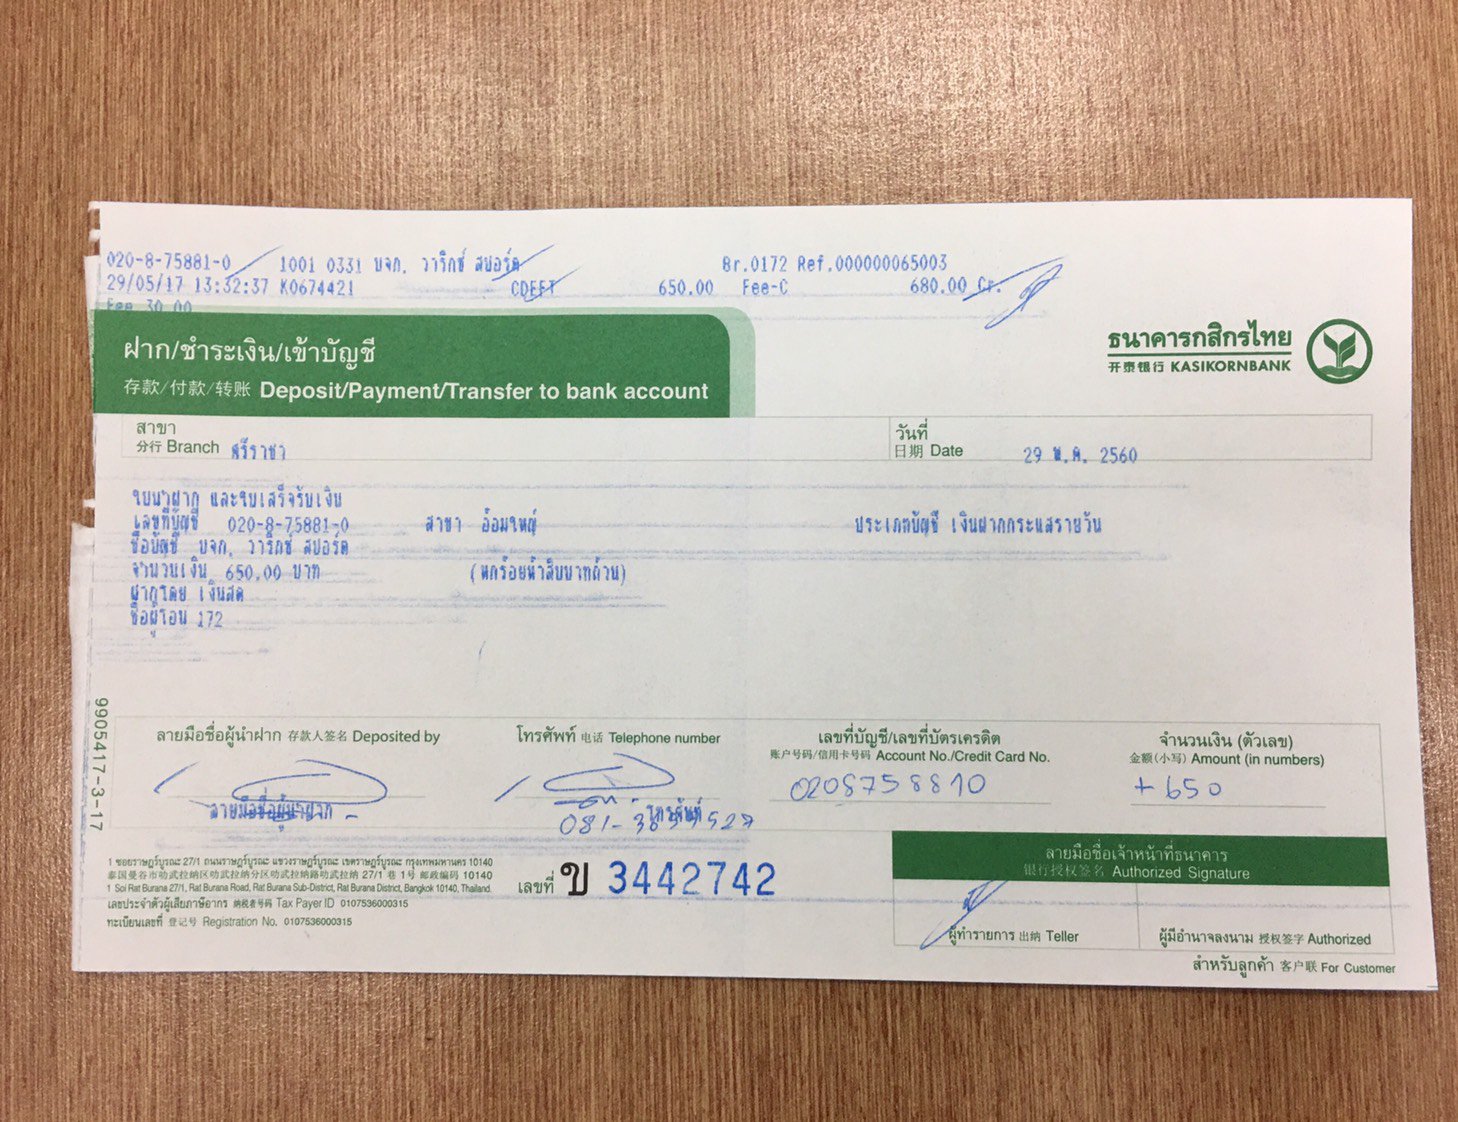 020-8-75881-0 1001 0331 บจก. วาริกซ์ สปอร์ต Br.0172 Ref.000000065003
29/05/17 13:32:37 K0674421 CDEFT 650.00 Fee-C 680.00 Cr.
Fee 30.00
ฝาก/ชำระเงิน/เข้าบัญชี
存款/付款/转账 Deposit/Payment/Transfer to bank account
ธนาคารกสิกรไทย
开泰银行 KASIKORNBANK
สาขา
分行 Branch ศรีราชา
วันที่
日期 Date 29 พ.ค. 2560
ใบนำฝาก และใบเสร็จรับเงิน
เลขที่บัญชี 020-8-75881-0 สาขา อ้อมใหญ่ ประเภทบัญชี เงินฝากกระแสรายวัน
ชื่อบัญชี บจก. วาริกซ์ สปอร์ต
จำนวนเงิน 650.00 บาท (หกร้อยห้าสิบบาทถ้วน)
ฝากโดย เงินสด
ชื่อผู้โอน 172
9905417-3-17
ลายมือชื่อผู้นำฝาก 存款人签名 Deposited by
โทรศัพท์ 电话 Telephone number
เลขที่บัญชี/เลขที่บัตรเครดิต
账户号码/信用卡号码 Account No./Credit Card No.
จำนวนเงิน (ตัวเลข)
金额(小写) Amount (in numbers)
0208758810
+650
ลายมือชื่อผู้นำฝาก
โทรศัพท์
1 ซอยราษฎร์บูรณะ 27/1 ถนนราษฎร์บูรณะ แขวงราษฎร์บูรณะ เขตราษฎร์บูรณะ กรุงเทพมหานคร 10140
泰国曼谷市叻武拉纳区叻武拉纳分区叻武拉纳路叻武拉纳 27/1 巷 1 号 邮政编码 10140
1 Soi Rat Burana 27/1, Rat Burana Road, Rat Burana Sub-District, Rat Burana District, Bangkok 10140, Thailand.
เลขประจำตัวผู้เสียภาษีอากร 纳税者号码 Tax Payer ID 0107536000315
ทะเบียนเลขที่ 登记号 Registration No. 0107536000315
เลขที่ ข 3442742
ลายมือชื่อเจ้าหน้าที่ธนาคาร
银行授权签名 Authorized Signature
ผู้ทำรายการ 出纳 Teller
ผู้มีอำนาจลงนาม 授权签字 Authorized
สำหรับลูกค้า 客户联 For Customer